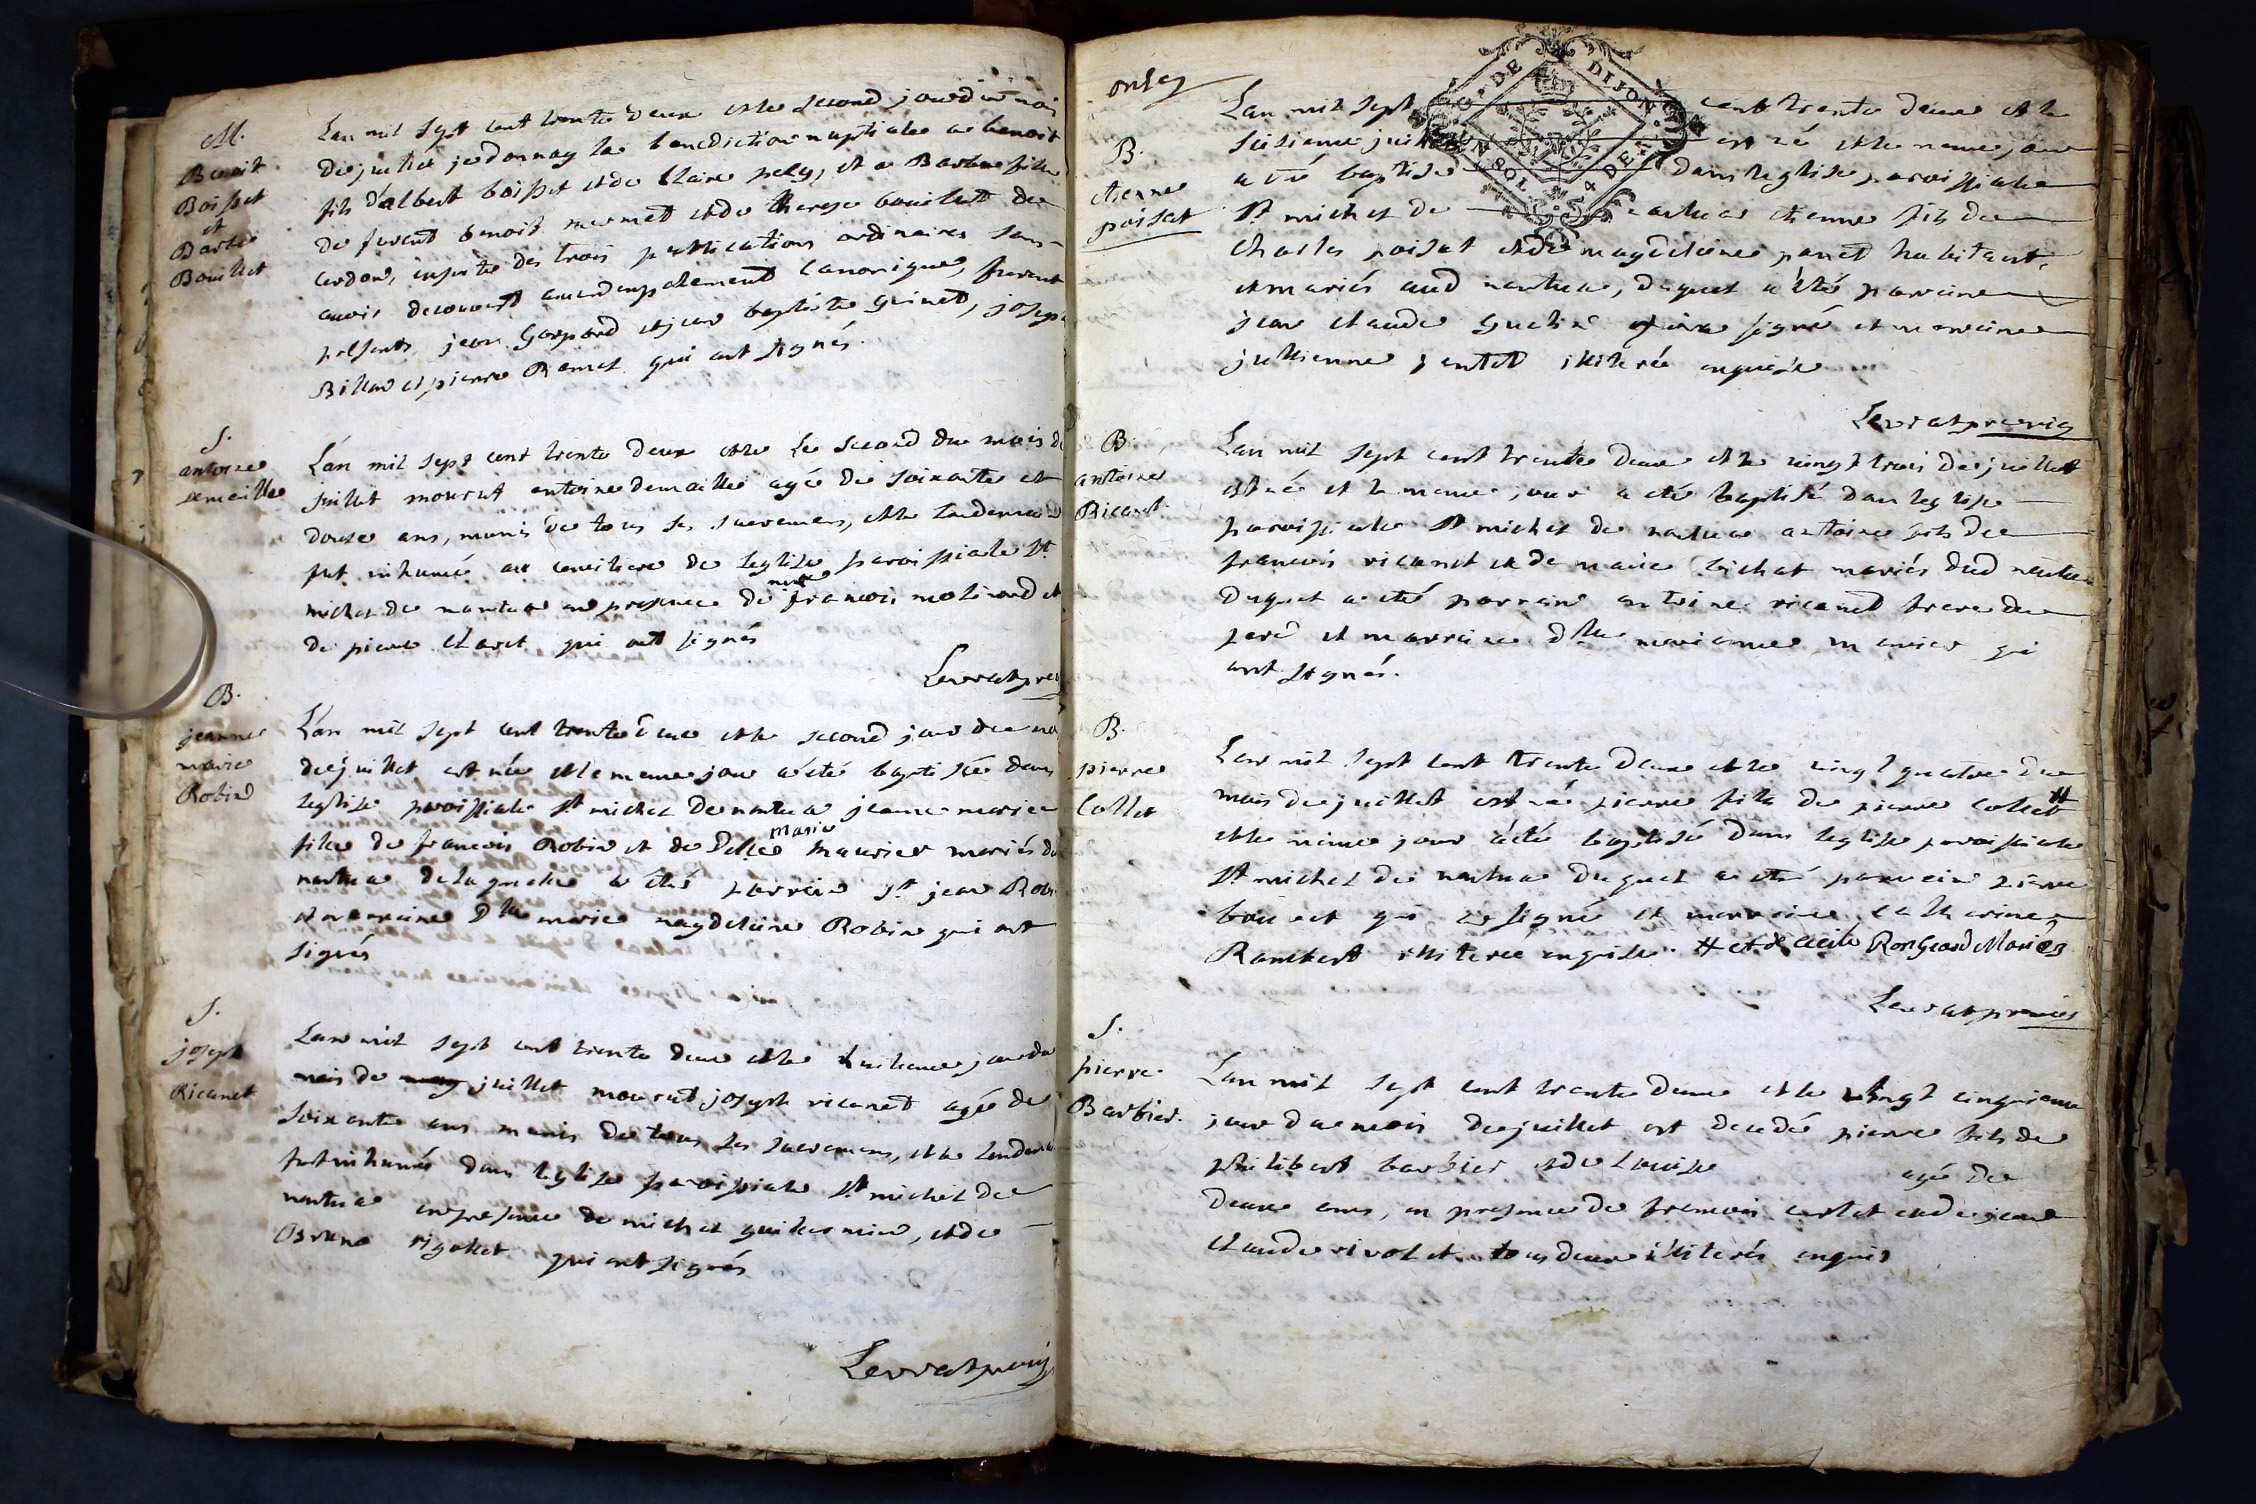 M.
Benoit
Boisset
et
Barbe
Bouillet
Lan mil sept cent trente deux et le second jour du moi
de juillet je donnay la benediction nuptiale a benoit
fils d'albert boisset et de Claire pely, et a Barbe fille
de furent benoit mermet et de therese bouillet de
cerdon, ensuite des trois publications ordinaires sans
avoir decouvert aucun empechement canonique, furent
presents jean Gaspard et jean baptiste guinet, joseph
Billion et pierre Ramet qui ont signés.
S.
antoine
demaille
L'an mil sept cent trente deux et le Le second du mois de
juillet mourut antoine demaille agée de soixante et
douse ans, munis de tous ses sacremens, et le lendemain
fut inhumé au cimitiere de leglise paroissiale St
michel de nantua en presence de me francois molinard et
de pierre claret qui ont signés
Levrat
B.
jeanne
marie
Robin
L'an mil sept cent trente deux et le second jour du mo
de juillet est née et le meme jour a été baptisée dans
leglise paroissiale St michel de nantua jeanne marie
fille de francois Robin et de Delle marie maurier mariés de
nantua de laquelle a été parrain Sr jean Robin
et marraine Dlle marie magdeleine Robin qui ont
signés
S.
joseph
Ricanet
Lan mil sept cent trente deux et le huitieme jour du
mois de juillet mourut joseph ricanet agée de
soixante ans munis de tous ses sacremens, et le lendemain
fut inhumé dans leglise paroissiale St michel de
nantua en presence de michel guillermin, et de
Bruno rigollet qui ont signés
Levrat
onse
B.
etienne
poisat
Lan mil sept cent trente deux et le
sixieme juillet est né et le meme jour
a été baptisé dans leglise paroissiale
St michel de nantua etienne fils de
Charles poisat et de magdeleine panet habitants
et mariés aud nantua, duquel a été parrain
jean claude signé et marraine
jullienne jantet illiterée enquise
Levrat
B.
antoine
Ricanet.
Lan mil sept cent trente deux et le vingt trois de juillet
est né et le meme jour a été baptisé dans leglise
paroissiale St michel de nantua antoine fils de
francois ricanet et de marie bichat mariés dud nantua
duquel a été parrain antoine ricanet frere du
pere et marraine dlle marianne mercier qui
ont signés.
B.
pierre
Collet
Lan mil sept cent trente deux et le vingt quatre du
mois de juillet est né pierre fils de pierre collet #
et le meme jour a été baptisé dans leglise paroissiale
St michel de nantua duquel a été parrain pierre
qui a signé et marraine catherine
illiterée enquise. # et de cecile Rongeard Mariés
Levrat
S.
pierre
Barbier.
Lan mil sept cent trente deux et le vingt cinquieme
jour du mois de juillet est decedé pierre fils de
philibert barbier et de Louise agé de
deux ans, en presence de francois carlet et de jean
claude rivolet tous deux illiterés enquis
G. DE DIJON
SOL 4 DE